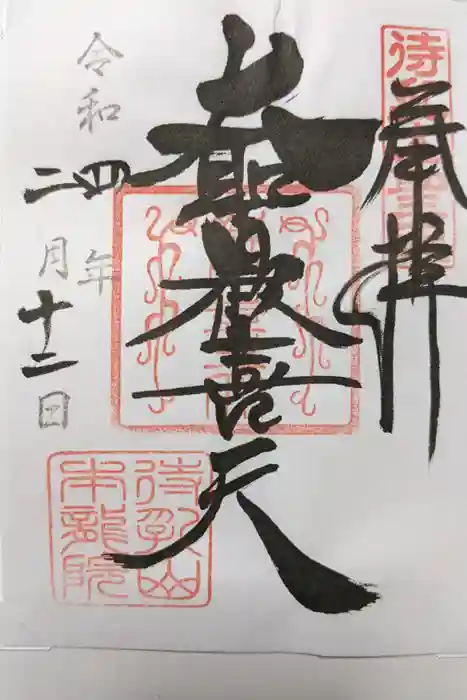 奉拝
待
大聖歓喜天
令和四年
二月十二日
待乳山
本龍院